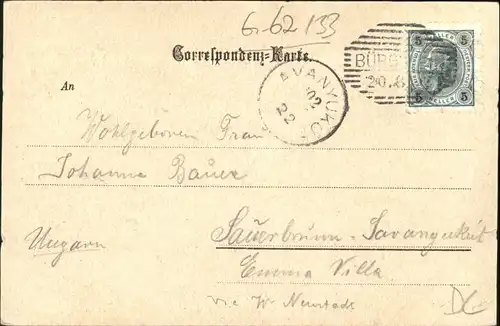 6-62 133
Correspondenz-Karte.
BÜRG
20.8
5 5
5 5
AVANYUKU
02
22
An
Wohlgeboren Frau
Johanna Bauer
Sauerbrunn-Savanyukut
Ungarn
Emma Villa
via W. Neustadt